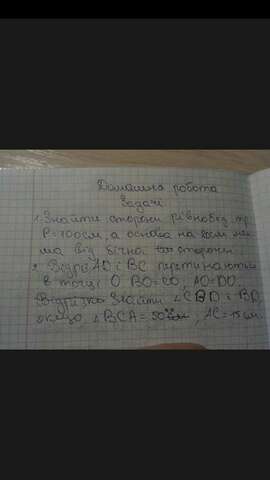 Домашня робота
Задачі
1. Знайти сторони рівнобед. тр.
P=100см, а основа на 20см мен
ша від бічної сторони
2. Відрі AD і BC перетинаються
в точці O BO=CO, AO=DO.
Знайти ∠CBD і BD,
якщо ∠BCA=50°, AC=15см.